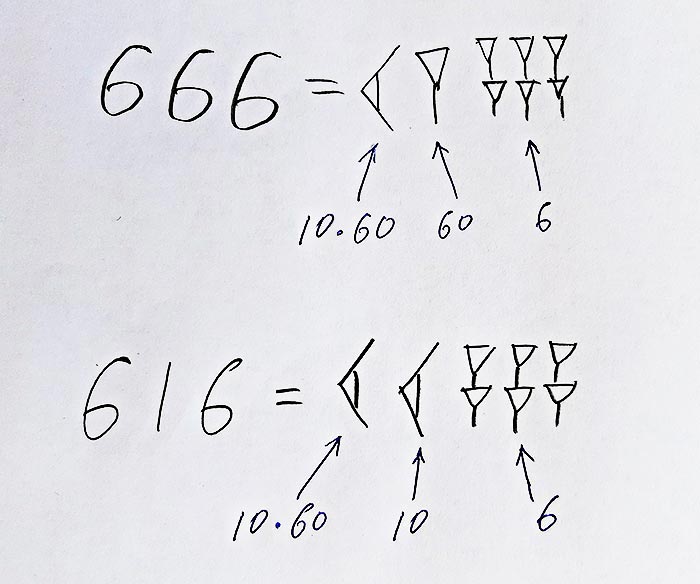 666 = 𒌋 𒁹 𒐋
10·60 60 6
616 = 𒌋 𒌋 𒐋
10·60 10 6